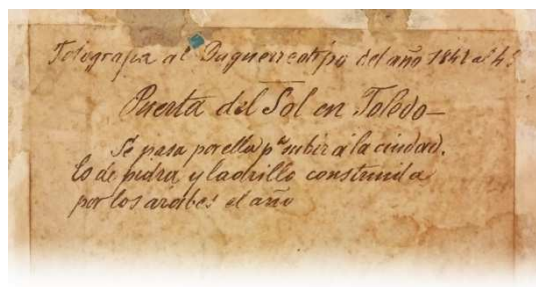 Fotografia al Daguerreotipo del año 1841 al 4
Puerta del Sol en Toledo—
Se pasa por ella pª subir á la ciudad.
Es de piedra y ladrillo construida
por los arabes el año